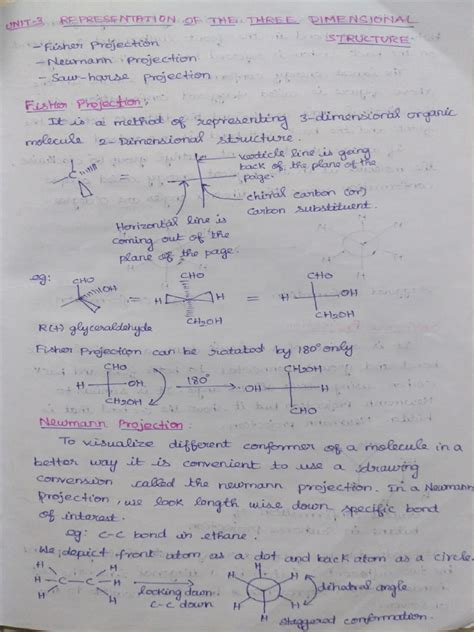 UNIT-3 REPRESENTATION OF THE THREE DIMENSIONAL
STRUCTURE.
- Fisher Projection
- Newmann Projection
- Saw-harse projection
Fisher Projection:
It is a method of representing 3-dimensional organic
molecule 2-Dimensional structure.
C
=
Verticle line is going
back of the plane of the
page.
chiral carbon (or)
carbon substituent.
Horizontal line is
coming out of the
plane of the page.
eg:
CHO CHO CHO
OH H H OH
= =
H CH2OH CH2OH
R(+) glyceraldehyde
Fisher Projection can be rotated by 180° only
CHO CH2OH
H OH 180° OH H
CH2OH CHO
Newmann Projection:
To visualize different conformer of a molecule in a
better way it is convenient to use a drawing
convension called the newmann projection. In a Newmann
projection, we look length wise down specific bond
of interest.
eg: C-C bond in ethane.
We depict front atom as a dot and back atom as a circle.
H H H
H-C-C-H looking down dihedral angle
C-C down
H H H H
H
staggered conformation.